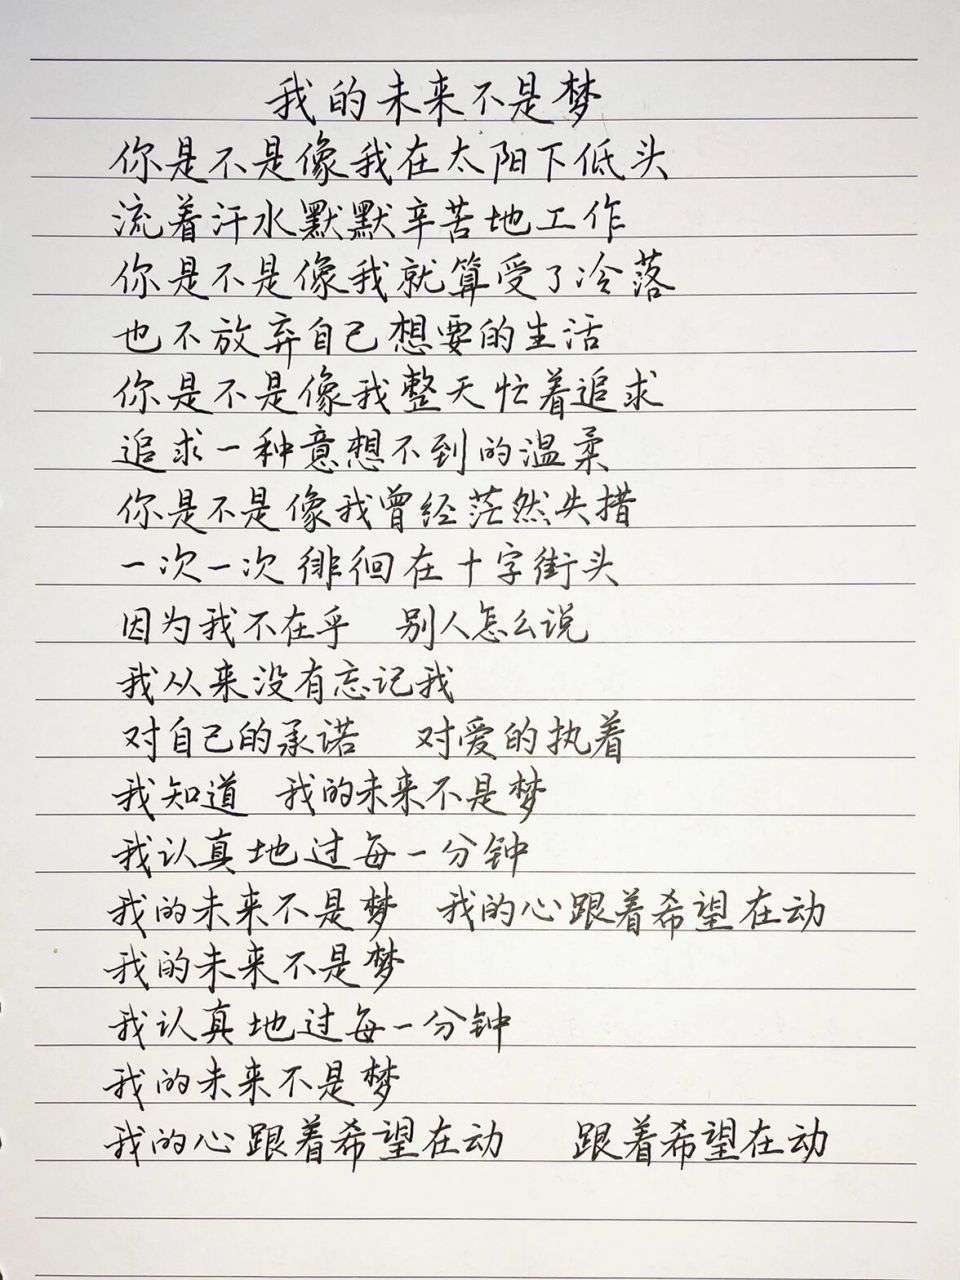 我的未来不是梦
你是不是像我在太阳下低头
流着汗水默默辛苦地工作
你是不是像我就算受了冷落
也不放弃自己想要的生活
你是不是像我整天忙着追求
追求一种意想不到的温柔
你是不是像我曾经茫然失措
一次一次徘徊在十字街头
因为我不在乎 别人怎么说
我从来没有忘记我
对自己的承诺 对爱的执着
我知道 我的未来不是梦
我认真地过每一分钟
我的未来不是梦 我的心跟着希望在动
我的未来不是梦
我认真地过每一分钟
我的未来不是梦
我的心跟着希望在动 跟着希望在动